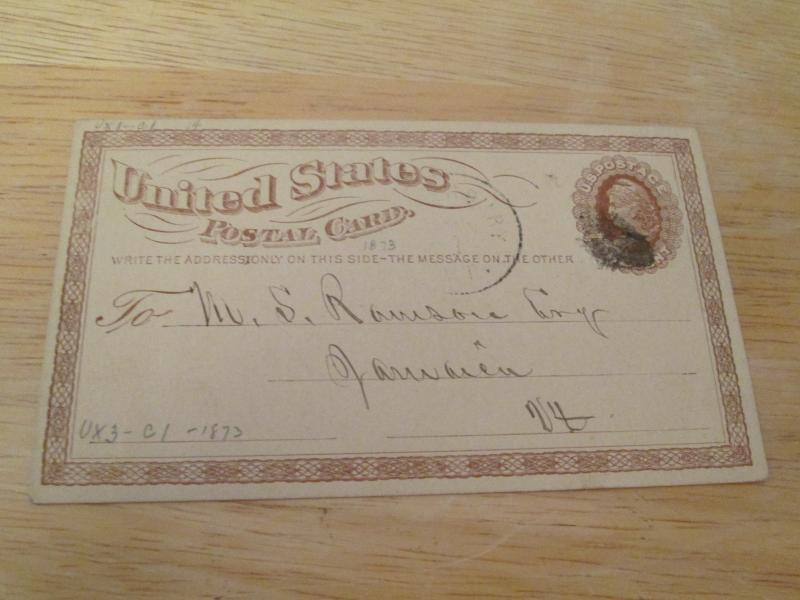 UX1-C1
United States
POSTAL CARD.
1873
WRITE THE ADDRESS ONLY ON THIS SIDE-THE MESSAGE ON THE OTHER
U.S. POSTAGE
To M. S. Ransom Esq
Jamaica
Vt.
UX3-C1-1873